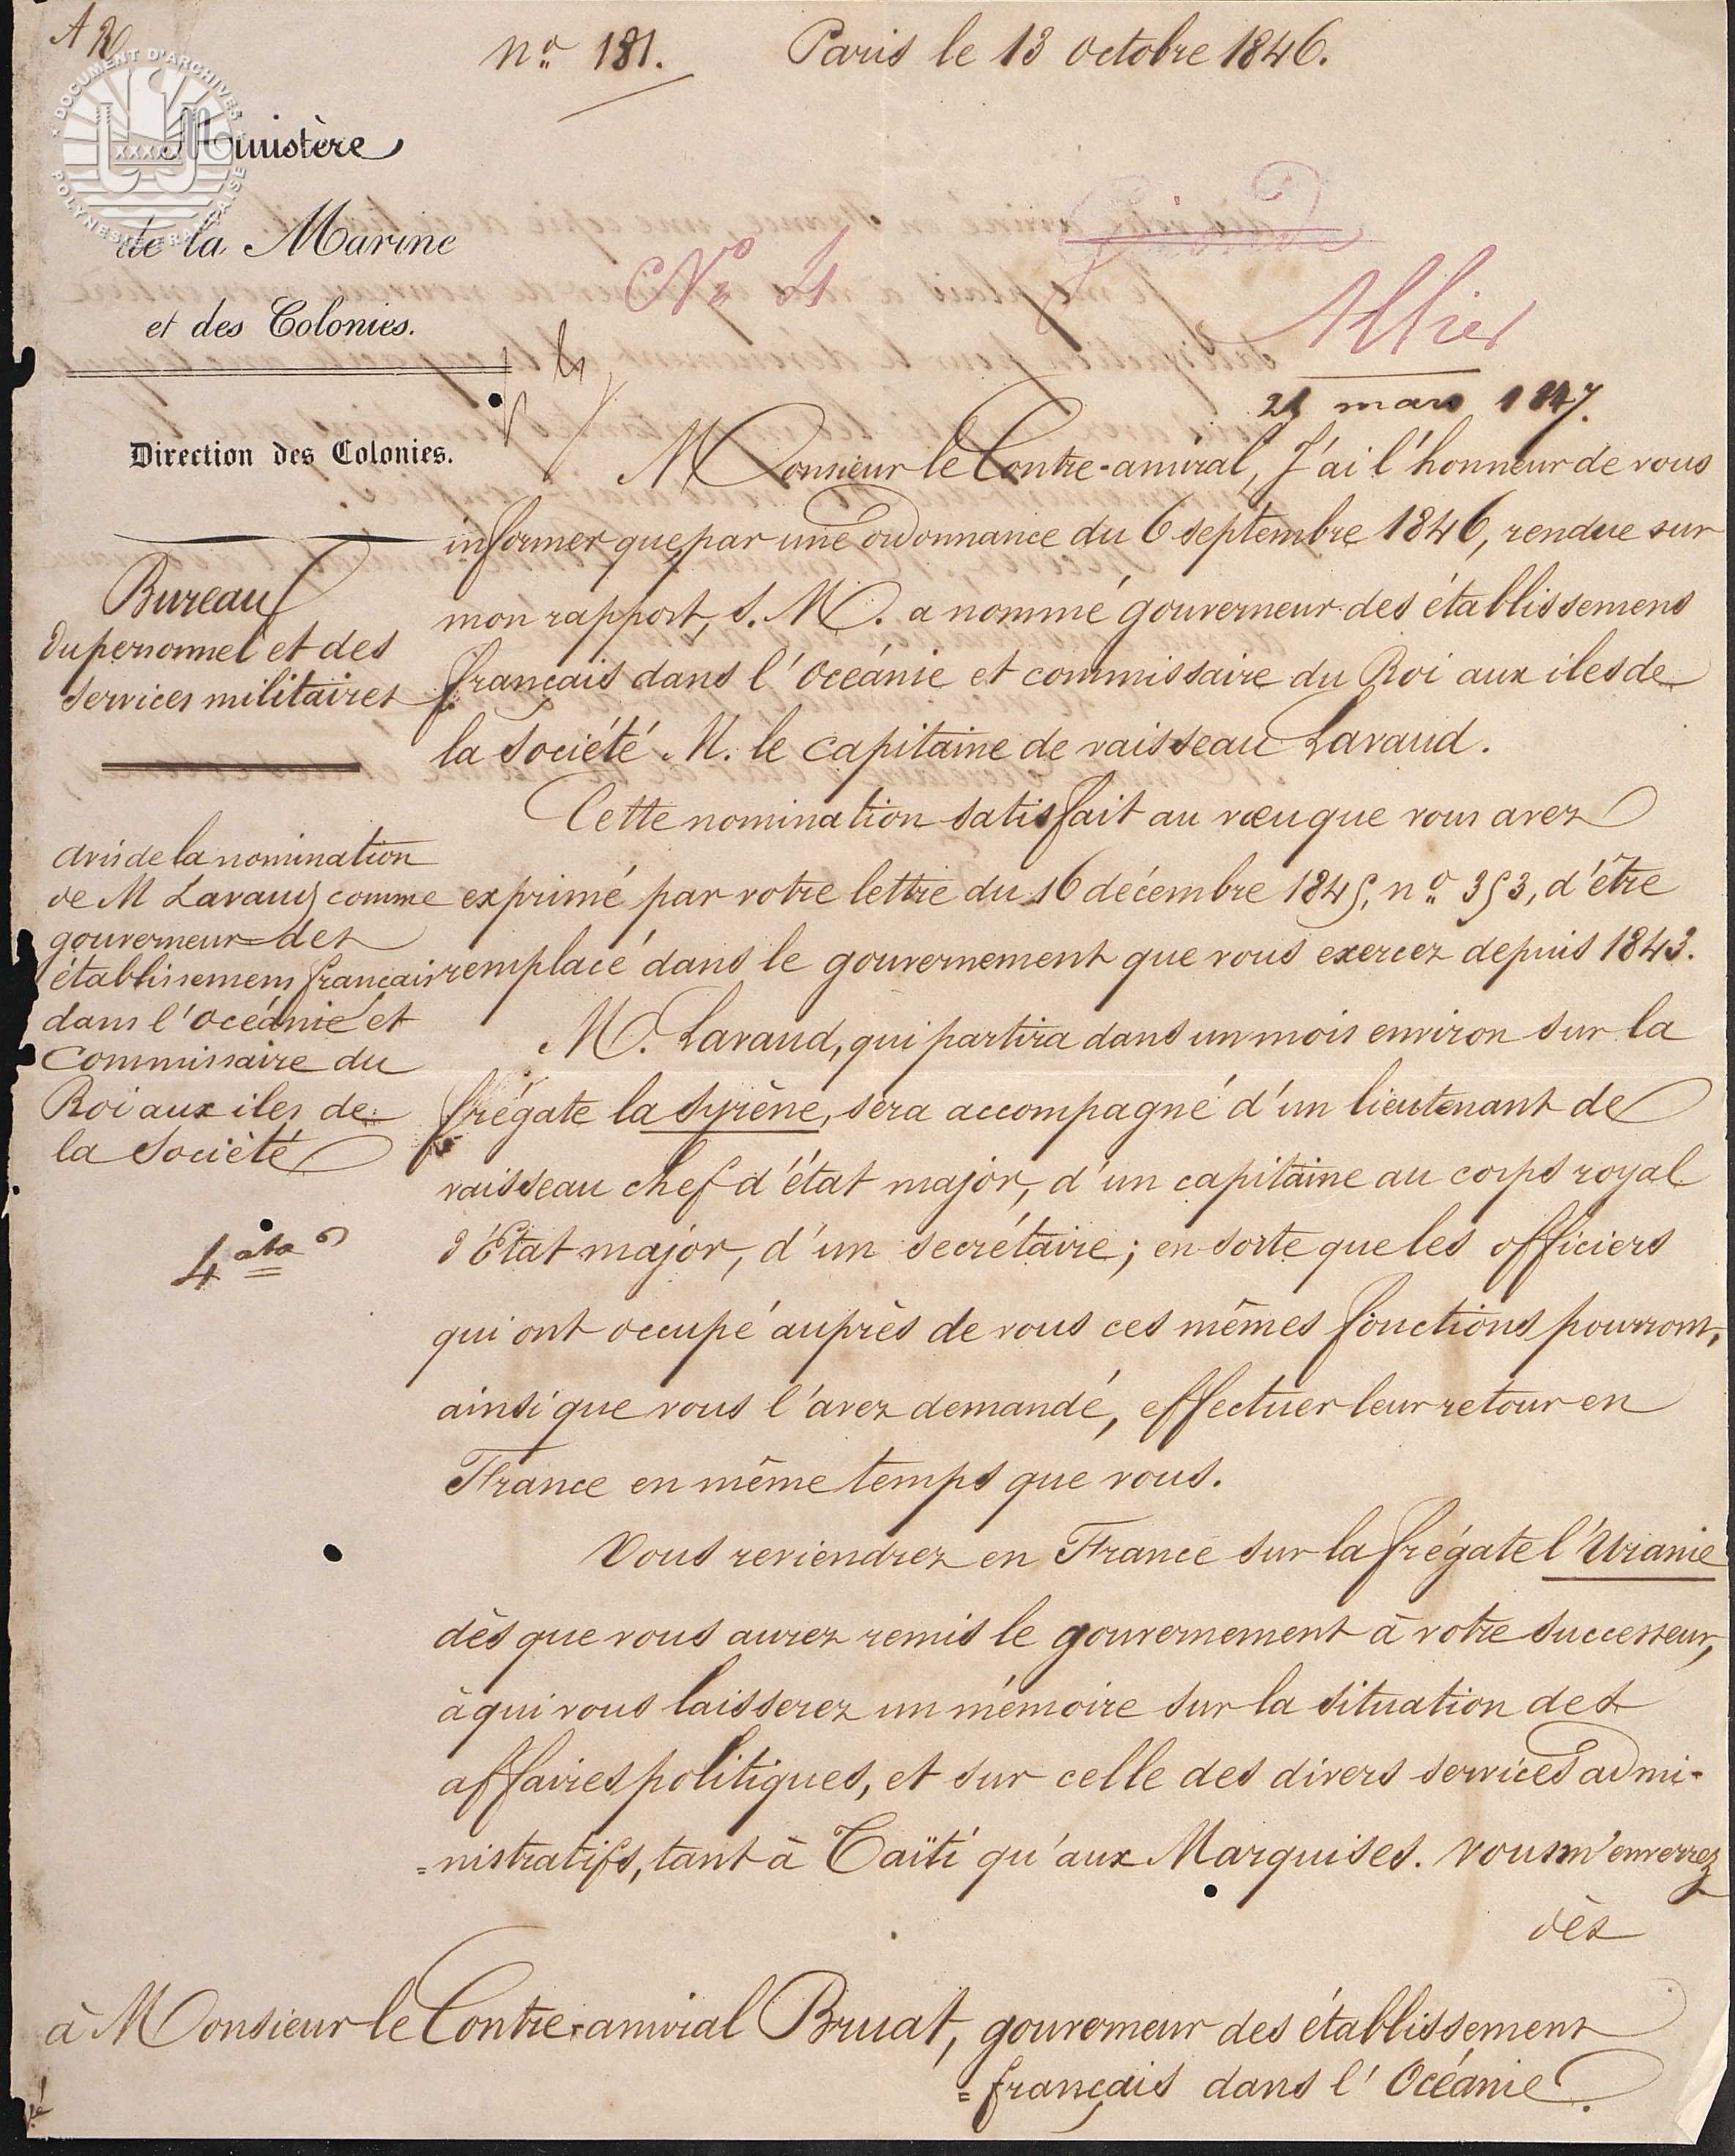 n.º 181. Paris le 13 octobre 1846.
DOCUMENT D'ARCHIVES
POLYNESIE FRANÇAISE
Ministère
de la Marine
et des Colonies.
Nº 4
Allier
21 mars 1847.
Direction des Colonies.
Bureau
du personnel et des
services militaires
avis de la nomination
de M Lavaud comme
gouverneur des
établissemens français
dans l'océanie et
Commissaire du
Roi aux iles de
la Société
Monsieur le Contre-amiral, J'ai l'honneur de vous
informer que, par une ordonnance du 6 septembre 1846, rendue sur
mon rapport, S. M. a nommé gouverneur des établissemens
français dans l'Océanie et commissaire du Roi aux iles de
la Société M. le capitaine de vaisseau Lavaud.
Cette nomination satisfait au vœu que vous avez
exprimé par votre lettre du 16 décembre 1845, n.º 353, d'être
remplacé dans le gouvernement que vous exercez depuis 1843.
M. Lavaud, qui partira dans un mois environ sur la
frégate la Syrène, sera accompagné d'un lieutenant de
vaisseau chef d'état major, d'un capitaine au corps royal
d'État major, d'un secrétaire; en sorte que les officiers
qui ont occupé auprès de vous ces mêmes fonctions pourront,
ainsi que vous l'avez demandé, effectuer leur retour en
France en même temps que vous.
Vous reviendrez en France sur la frégate l'Uranie
dès que vous aurez remis le gouvernement à votre successeur,
à qui vous laisserez un mémoire sur la situation des
affaires politiques, et sur celle des divers services admi-
=nistratifs, tant à Taïti qu'aux Marquises. Vous m'enverrez
dès
à Monsieur le Contre-amiral Bruat, gouverneur des établissemens
=français dans l'Océanie.